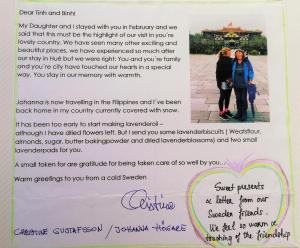 Dear Tinh and Binh!
My Daughter and I stayed with you in February and we
said that this must be the highlight of our visit in you're
lovely country. We have seen many other exciting and
beautiful places, we have experienced so much after
our stay in Hué but we were right: You and you're family
and you're city have touched our hearts in a special
way. You stay in our memory with warmth.
Johanna is now travelling in the Filippines and I've been
back home in my country currently covered with snow.
It has been too early to start making lavenderoil –
although I have dried flowers left. But I send you some lavenderbiscuits ( Weatsflour,
almonds, sugar, butter bakingpowder and dried lavenderblossoms) and two small
lavenderpads for you.
A small token for are gratitude for being taken care of so well by you...
Warm greetings to you from a cold Sweden
Christina
CHRISTINE GUSTAFSSON JOHANNA
Sweet presents
& letter from our
Sweden friends.
We feel so warm &
touching of the friendship